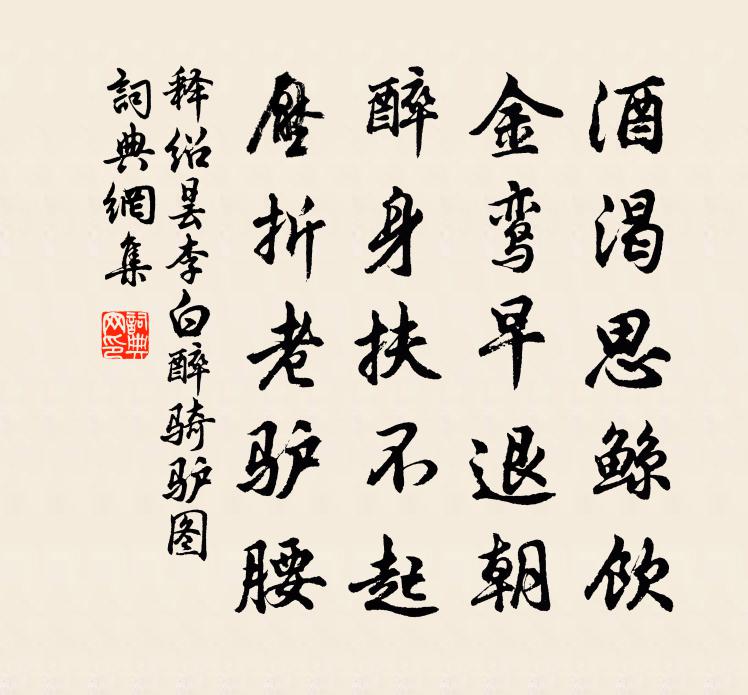 酒渴思鲸饮
金鸾早退朝
醉身扶不起
壓折老驴腰
释绍昙李白醉骑驴图
詞典網集
詞典网印